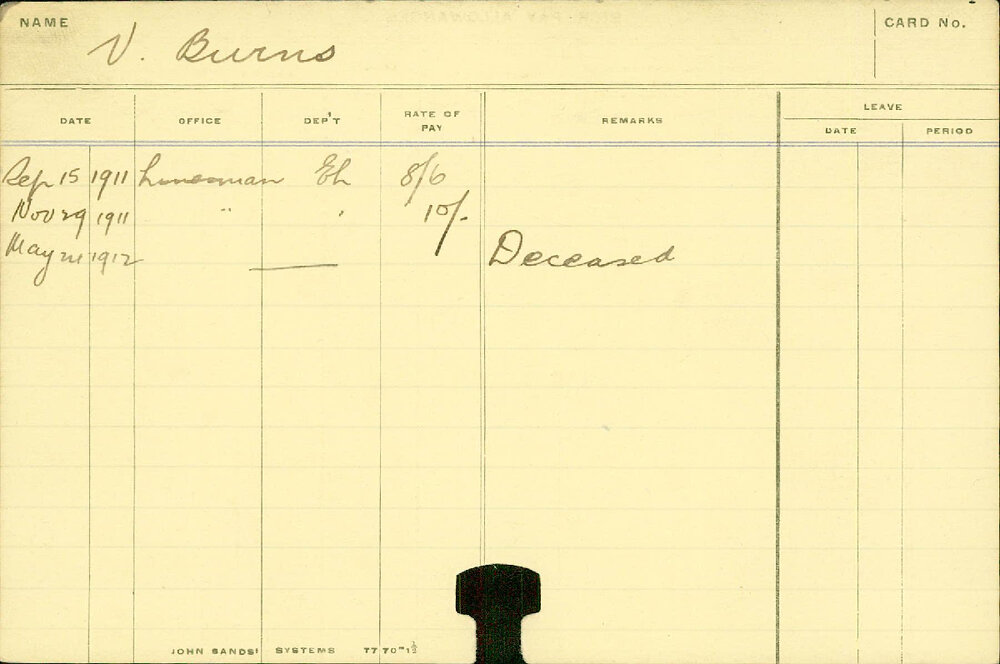 NAME V. Burns CARD No.
DATE OFFICE DEP'T RATE OF PAY REMARKS LEAVE
DATE PERIOD
Sep 15 1911 Linesman Eh 8/6
Nov 29 1911 " " 10/-
May 21 1912 Deceased
JOHN SANDS' SYSTEMS